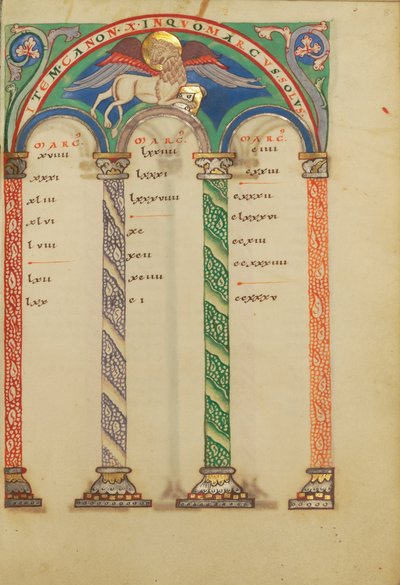 ITEM·CANON·X·INQVO·MARCVS·SOLVS·
MARC̄·
xviiii
xxxi
xliii
xlvi
lviii
lxii
lxx
MARC̄·
lxxiiii
lxxxi
lxxxviiii
xc
xcii
xciiii
ci
MARC̄·
ciiii
cxxiii
clxxxvi
ccxiii
ccxxxiiii
ccxxxv